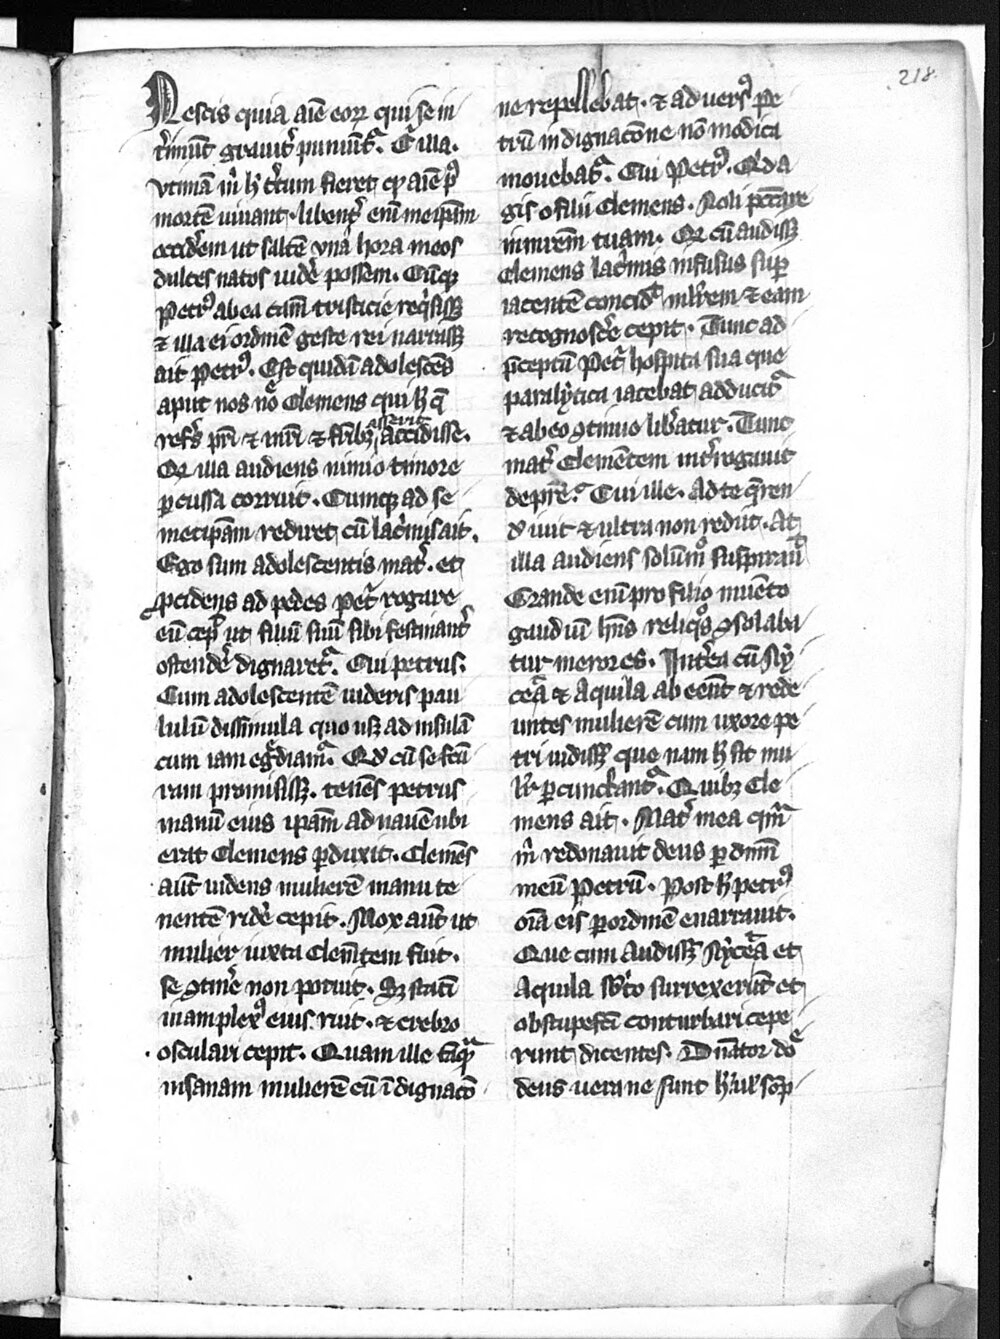 218
Nescis quia aīe eoꝝ qui se in
t'imūt grauit' puniūt̉. C̉ illa.
vtinā m̉ h' c'tum fieret ꝙ aīe pꝰ
mortē uiuant. libent' eni meipam
occid'em ut saltē vna hora meos
dulces natos uid'e possem. Cūqꝫ
Petrꝰ ab ea cām tristicie req̉sissꝫ
⁊ illa ei ordinē geste rei narrassꝫ
ait Petrꝰ. Est quidā adolescēs
aput nos noē Clemens qui h' q̄
ref's pr̄i ⁊ mr̄i ⁊ fr̄ibꝫ asserit accidisse.
Qꝫ illa audiens nimio timore
ꝑcussa corruit. Cumqꝫ ad se
metipam rediret cū lac'mis ait.
Ego sum adolescentis mat'. et
ꝓcidens ad pedes Pet' rogare
eū cepꝰ ut filiū suū sibi festinant'
ostend'e dignaret̉. Cui petrus.
Cum adolescentē uideris pau
lulū dissimula quo usqꝫ ad insulā
cum iam eg̉diam̉. Qd' cū se fcū
ram promisissꝫ. tenēs petrus
manū eius ipam ad nauē ubi
erat Clemens ꝑduxit. Clemēs
aūt uidens mulierē manu te
nentē rid'e cepit. Mox aūt ut
mulier iuxta Clemētem fuit.
se ꝯtin'e non potuit. Sꝫ statī
in amplexꝰ eius ruit. ⁊ crebro
osculari cepit. Quam ille tāqꝫ
insanam mulierē cū īdignacō
ne repellebat. ⁊ aduersꝰ Pe
trū indignacōne nō modica
mouebat̉. Cui Petrꝰ. Q'd a
gis o fili Clemens. Noli pc̄tare
inimrēm tuam. Qꝫ cū audissꝫ
Clemens lac'mis infusus suꝑ
iacentē concid' mr̄em ⁊ eam
recognosc'e cepit. Tunc ad
p̄ceptū Pet' hospita sua que
paralytica iacebat adducit̉
⁊ ab eo ꝯtinuo lib'atur. Tunc
mat' Clemētem int'rogauit
de pr̄e. Cui ille. Ad te q̄ren
d' iuit ⁊ ultra non rediit. At
illa audiens solūmꝰ suspirauᵗ
Grande enī pro filio inuēto
gaudiū hn̄s reliq̉s ꝯsolaba
tur merores. Int'ea cū Ny
cēa ⁊ Aquila ab eēnt ⁊ rede
untes mulierē cum uxore pe
tri uidissꝫ que nam h' sit mu
lier ꝑcunctant̉. Quibꝫ Cle
mens ait. Mat' mea quā
m̉ redonauit deus ꝑ dnm
meū Petrū. Post h' petrꝰ
oīa eis ꝑ ordinē enarrauit.
Que cum audissꝫ Nycēa et
Aquila sb'to surrexerūt et
obstupefci conturbari cepe
runt dicentes. Dnātor dnē
deus uera ne sunt h' uł sop̄